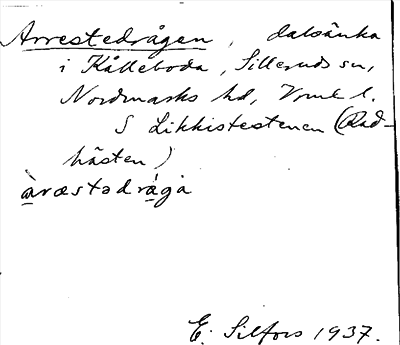 Arrestedrågen, dalsänka
i Kålleboda, Silleruds sn,
Nordmarks hd, Vrml l.
S Likkistestenen (Rad-
hästen)
àræstədrǻga
E. Silfors 1937.